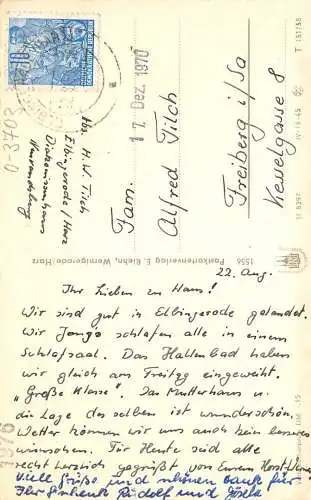 DEUTSCHE DEMOKRATISCHE REPUBLIK
10
17. Dez. 1970
Fam.
Alfred Tilch
Freiberg i/Sa
Kesselgasse 8
Abs. H. W. Tilch
Elbingerode / Harz
Diakonissenhaus
0-3702
T 151/58
IV-14-45
1556 Postkartenverlag E. Riehn, Wernigerode/Harz
22. Aug.
Ihr Lieben zu Haus!
Wir sind gut in Elbingerode gelandet.
Wir Jungs schlafen alle in einem
Schlafsaal. Das Hallenbad haben
wir gleich am Freitag eingeweiht.
„Große Klasse". Das Mutterhaus u.
die Lage desselben ist wunderschön.
Wetter können wir uns auch kein besseres
wünschen. Für Heute seid alle
recht herzlich gegrüßt von Eurem Horst
Viele Grüße und schönen Dank für
Rudolf und